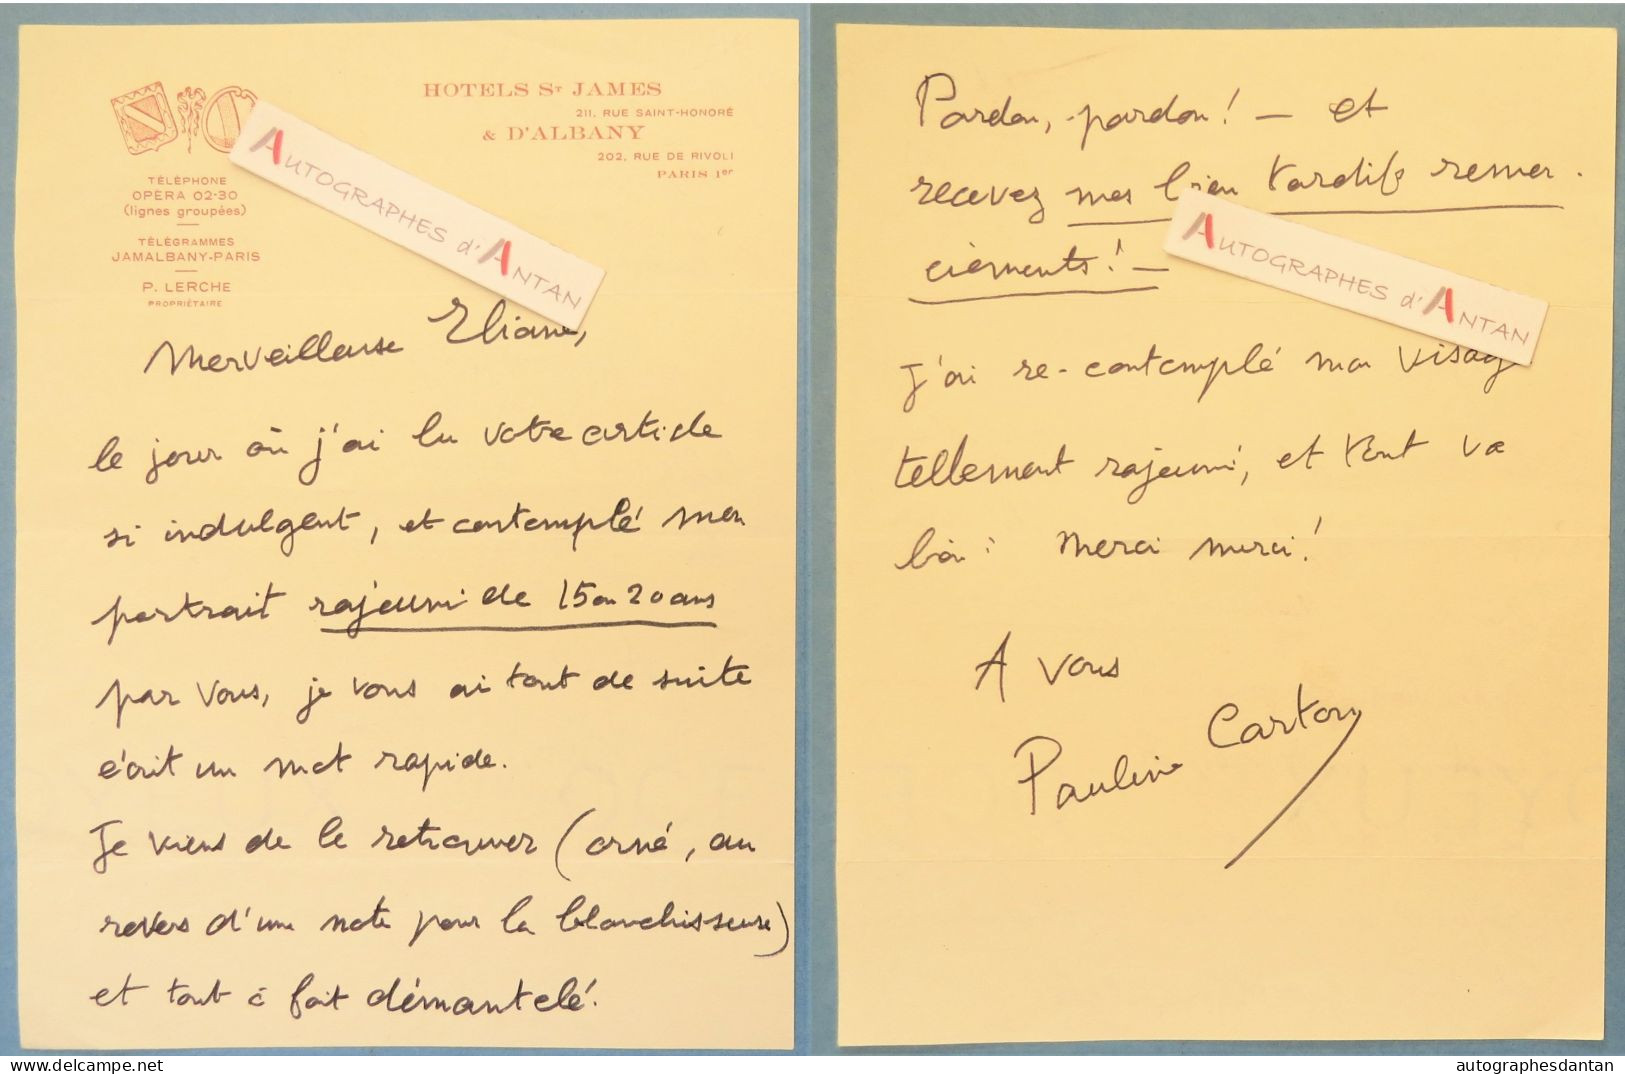 HOTELS ST JAMES
211, RUE SAINT-HONORÉ
& D'ALBANY
202, RUE DE RIVOLI
PARIS 1er
TÉLÉPHONE
OPÉRA 02-30
(lignes groupées)
TÉLÉGRAMMES
JAMALBANY-PARIS
P. LERCHE
PROPRIÉTAIRE
AUTOGRAPHES d'ANTAN
Merveilleuse Eliane,
le jour où j'ai lu votre article
si indulgent, et contemplé mon
portrait rajeuni de 15 ou 20 ans
par vous, je vous ai tout de suite
écrit un mot rapide.
Je viens de le retrouver (orné, au
revers d'une note pour la blanchisseuse)
et tout à fait démantelé.
Pardon, pardon! — et
recevez mes bien tardifs remer-
ciements! —
AUTOGRAPHES d'ANTAN
J'ai re-contemplé mon visage
tellement rajeuni, et tout va
bien: merci merci!
A vous
Pauline Carton
delcampe.net
autographesdantan